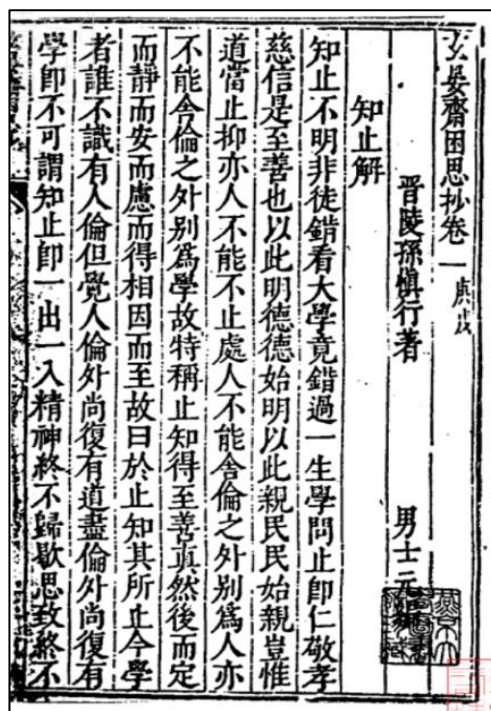 玄晏齋困思抄卷一 庚戌
晋陵孫愼行著 男士元
知止解
知止不明非徒錯看大學竟錯過一生學問止卽仁敬孝
慈信是至善也以此明德德始明以此親民民始親豈惟
道當止抑亦人不能不止處人不能舍倫之外別爲人亦
不能舍倫之外別爲學故特稱止知得至善眞然後而定
而靜而安而慮而得相因而至故曰於止知其所止今學
者誰不識有人倫但覺人倫外尚復有道盡倫外尚復有
學卽不可謂知止卽一出一入精神終不歸歇思致終不